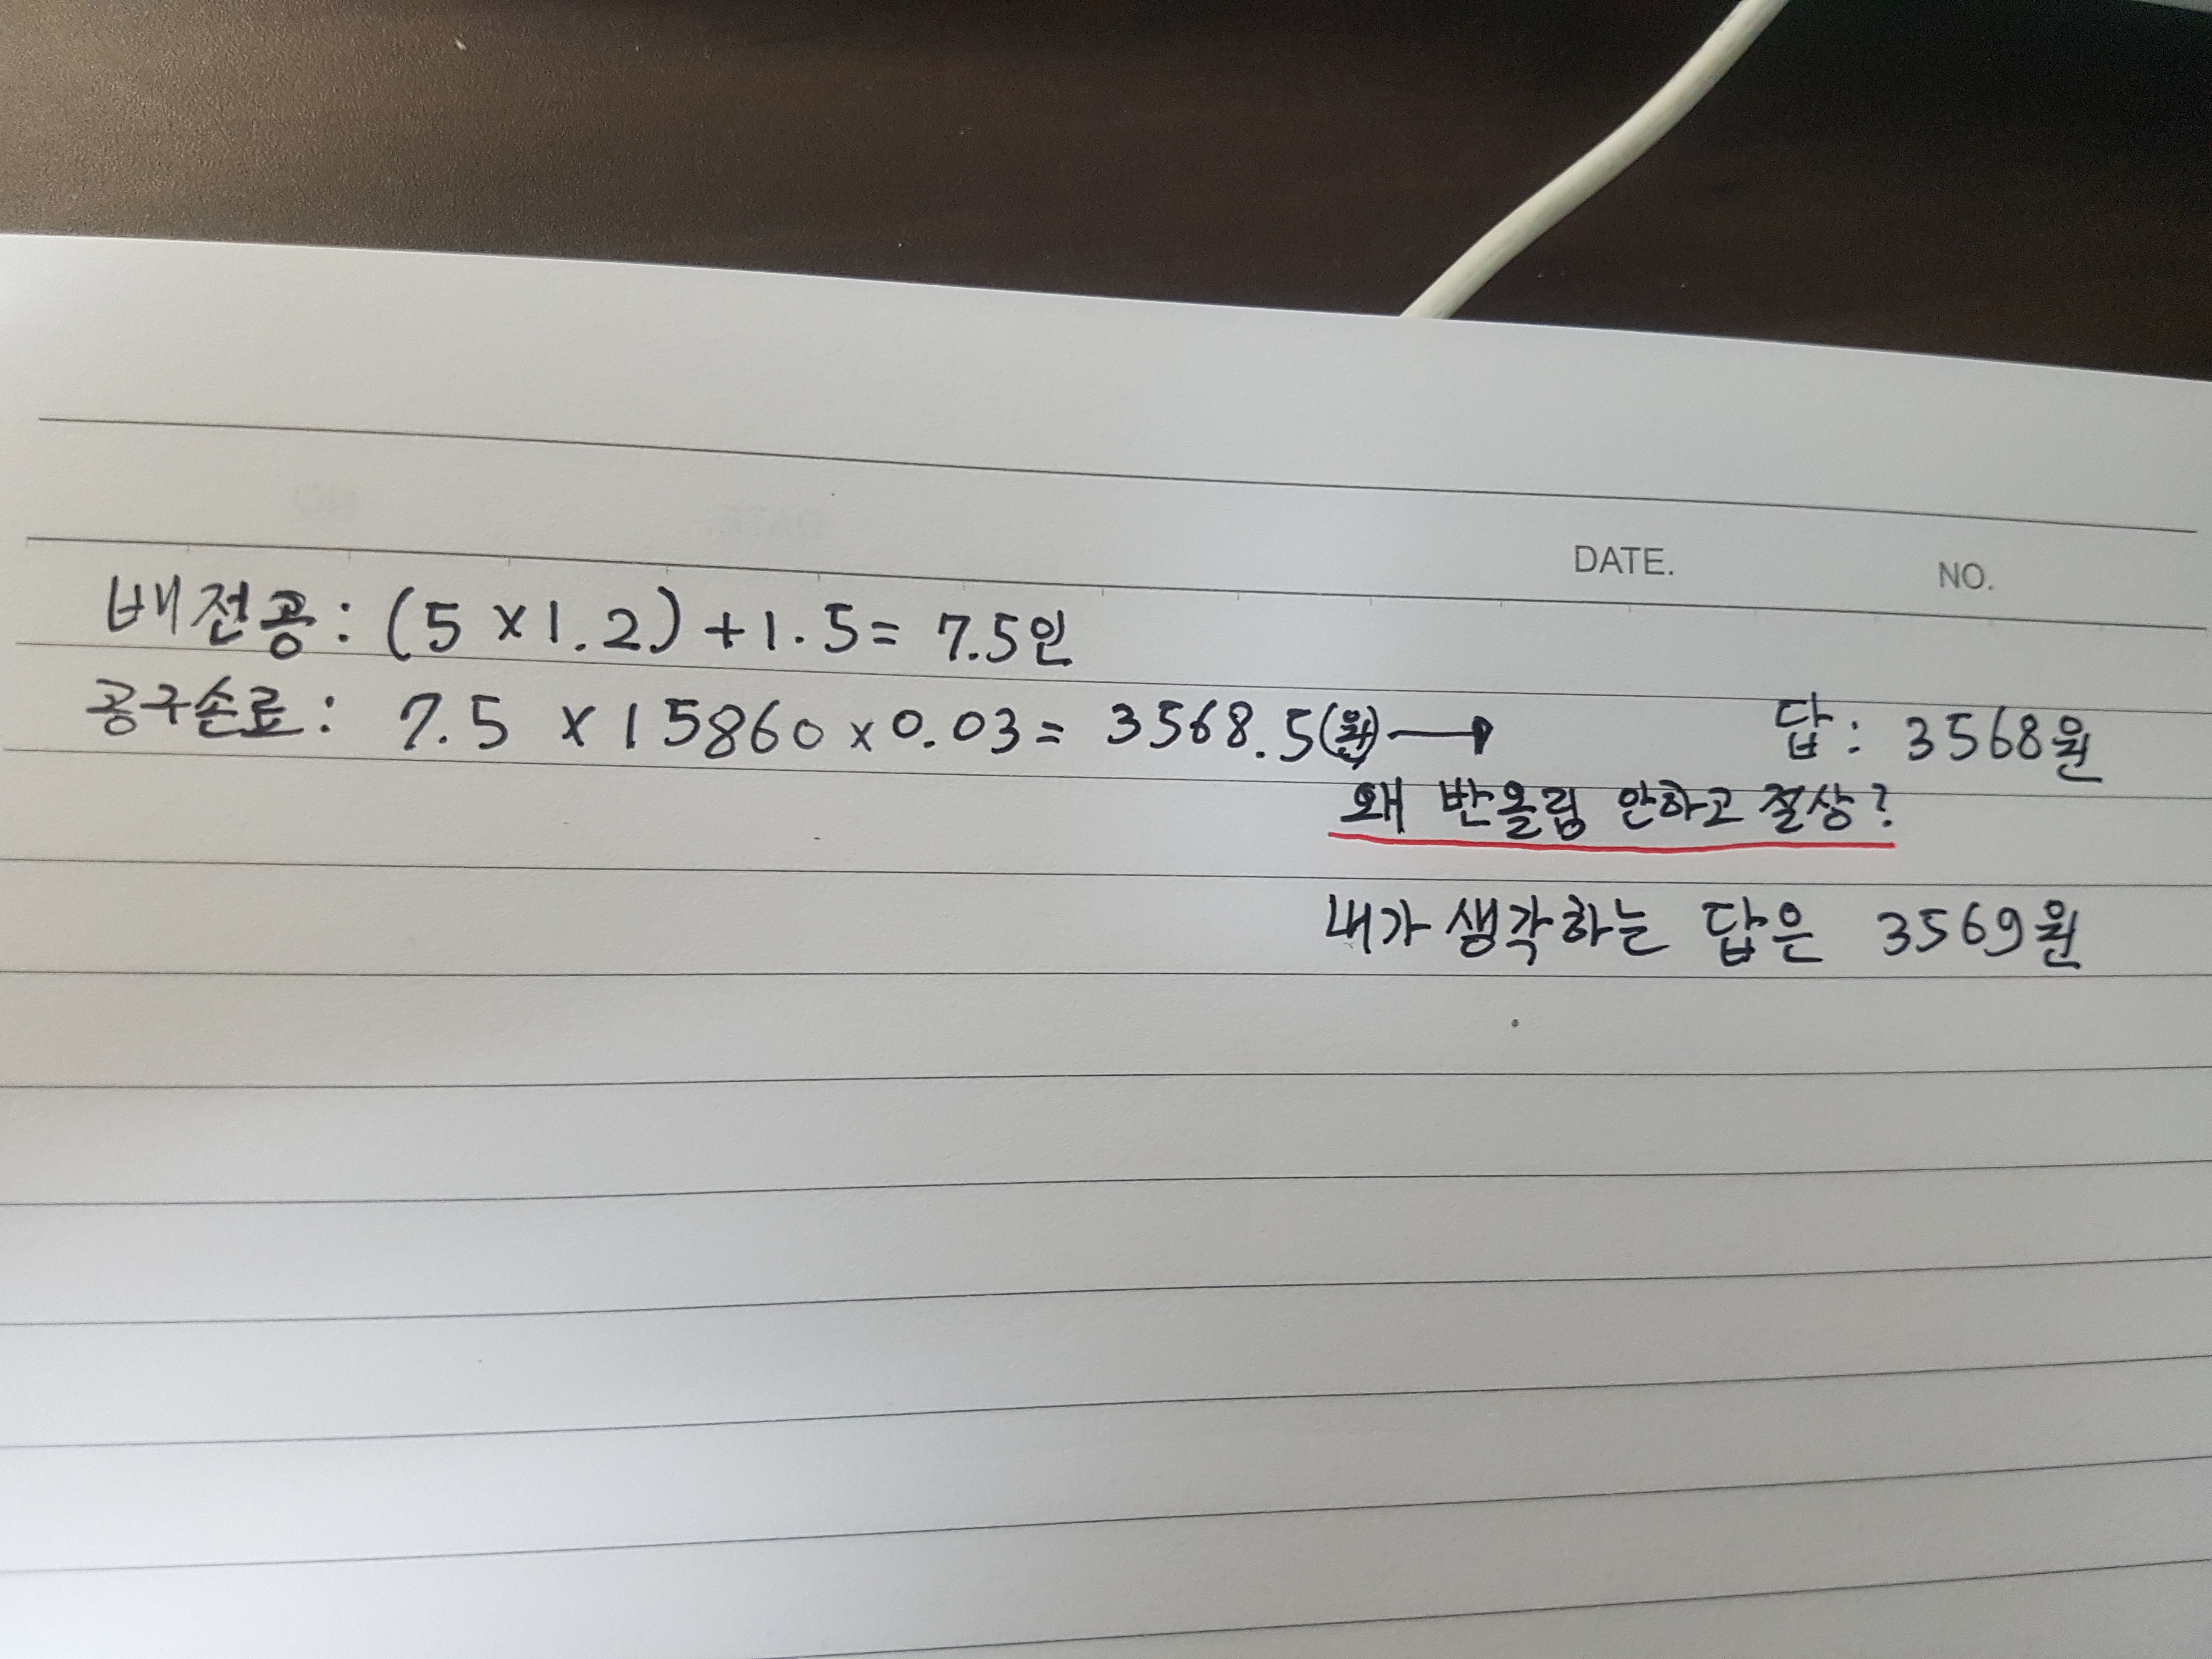 DATE. NO.
배전공: (5 x 1.2) + 1.5 = 7.5인
공구손료: 7.5 x 15860 x 0.03 = 3568.5(원) → 답: 3568원
왜 반올림 안하고 절상?
내가 생각하는 답은 3569원